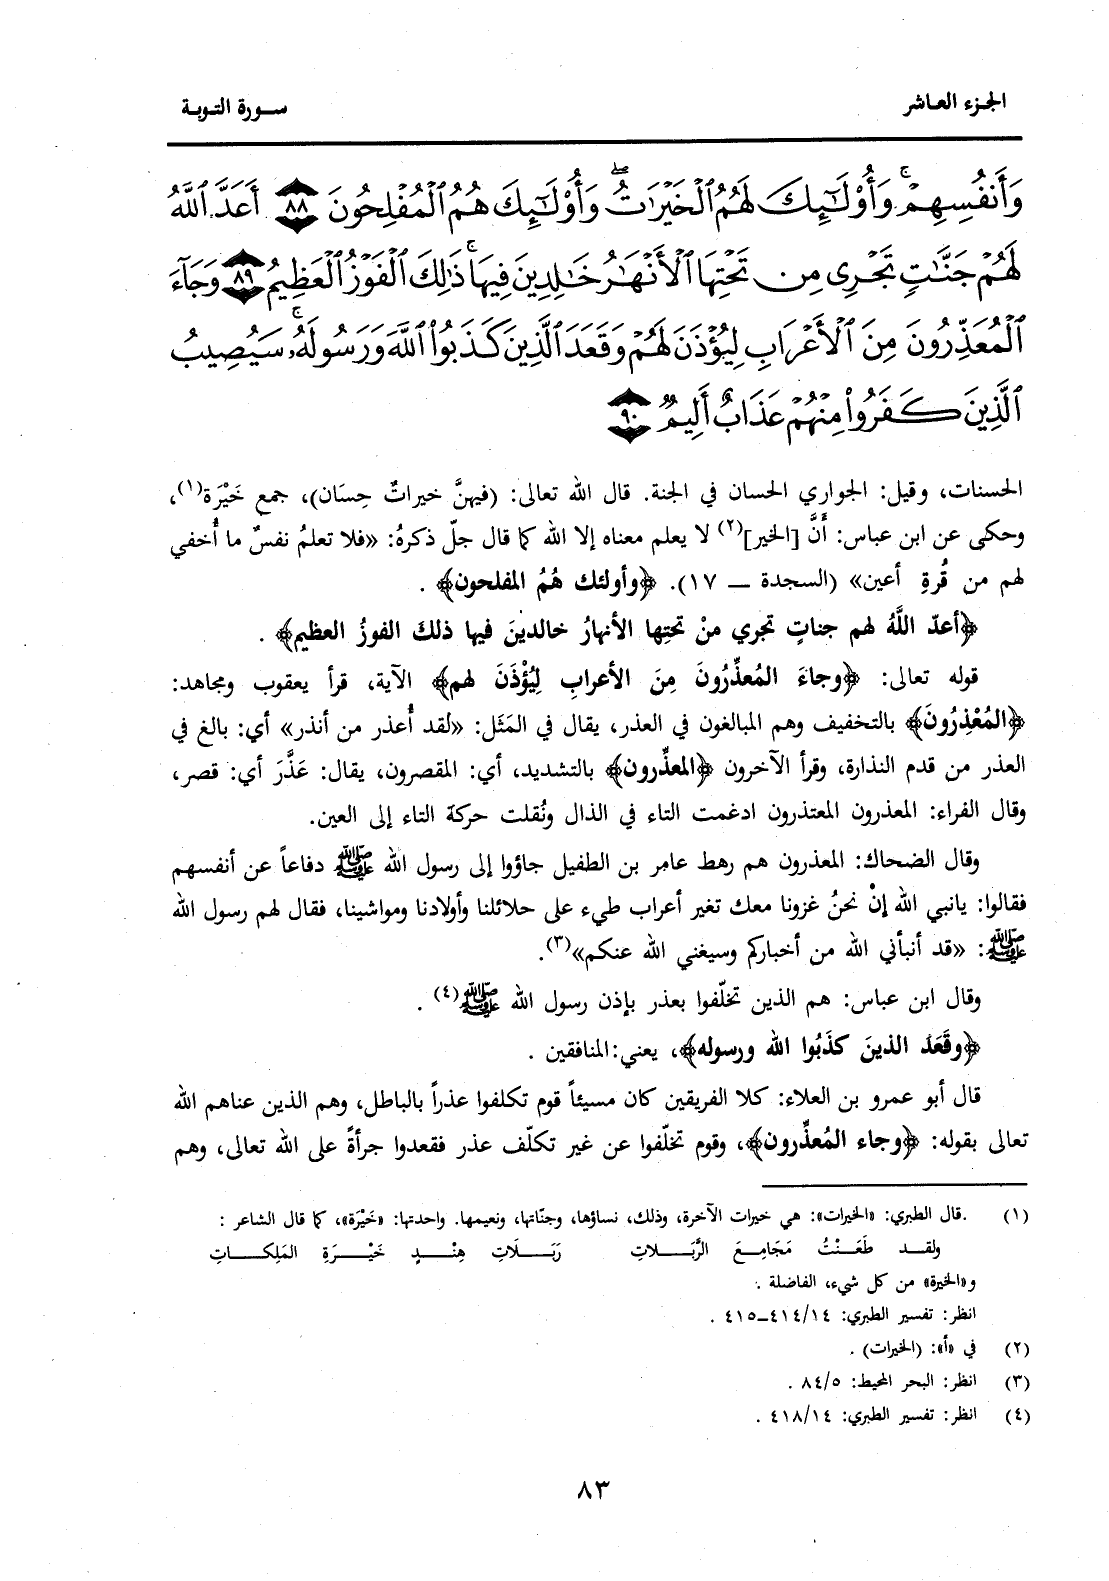 الجزء العاشر
سورة التوبة
وَأَنفُسِهِمْ وَأُوْلَٰٓئِكَ لَهُمُ ٱلْخَيْرَٰتُ وَأُوْلَٰٓئِكَ هُمُ ٱلْمُفْلِحُونَ ٨٨ أَعَدَّ ٱللَّهُ
لَهُمْ جَنَّٰتٍ تَجْرِى مِن تَحْتِهَا ٱلْأَنْهَٰرُ خَٰلِدِينَ فِيهَا ذَٰلِكَ ٱلْفَوْزُ ٱلْعَظِيمُ ٨٩ وَجَآءَ
ٱلْمُعَذِّرُونَ مِنَ ٱلْأَعْرَابِ لِيُؤْذَنَ لَهُمْ وَقَعَدَ ٱلَّذِينَ كَذَبُوا۟ ٱللَّهَ وَرَسُولَهُۥ سَيُصِيبُ
ٱلَّذِينَ كَفَرُوا۟ مِنْهُمْ عَذَابٌ أَلِيمٌ ٩٠
الحسنات، وقيل: الجواري الحسان في الجنة. قال الله تعالى: (فيهنَّ خيراتٌ حِسَان)، جمع خَيْرَة(١)،
وحكى عن ابن عباس: أَنَّ [الخير](٢) لا يعلم معناه إلا الله كما قال جلّ ذكرهُ: «فلا تعلمُ نفسٌ ما أُخفي
لهم من قُرةِ أعين» (السجدة ــ ١٧). ﴿وأولئك هُمُ المفلحون﴾ .
﴿أعدّ اللَّهُ لهم جناتٍ تجري منْ تحتِها الأنهارُ خالدينَ فيها ذلكَ الفوزُ العظيم﴾ .
قوله تعالى: ﴿وجاءَ المُعذِّرُونَ مِنَ الأعرابِ لِيُؤْذَنَ لهم﴾ الآية، قرأ يعقوب ومجاهد:
﴿المُعْذِرُونَ﴾ بالتخفيف وهم المبالغون في العذر، يقال في المَثَل: «لقد أُعذر من أنذر» أي: بالغ في
العذر من قدم النذارة، وقرأ الآخرون ﴿المعذِّرون﴾ بالتشديد، أي: المقصرون، يقال: عَذَّرَ أي: قصر،
وقال الفراء: المعذرون المعتذرون ادغمت التاء في الذال ونُقلت حركة التاء إلى العين.
وقال الضحاك: المعذرون هم رهط عامر بن الطفيل جاؤوا إلى رسول الله ﷺ دفاعاً عن أنفسهم
فقالوا: يانبي الله إنْ نحنُ غزونا معك تغير أعراب طيء على حلائلنا وأولادنا ومواشينا، فقال لهم رسول الله
ﷺ: «قد أنبأني الله من أخباركم وسيغني الله عنكم»(٣).
وقال ابن عباس: هم الذين تخلّفوا بعذر بإذن رسول الله ﷺ(٤) .
﴿وقَعَدَ الذينَ كذَبُوا الله ورسوله﴾، يعني:المنافقين .
قال أبو عمرو بن العلاء: كلا الفريقين كان مسيئاً قوم تكلفوا عذراً بالباطل، وهم الذين عناهم الله
تعالى بقوله: ﴿وجاء المُعذِّرون﴾، وقوم تخلّفوا عن غير تكلّف عذر فقعدوا جرأةً على الله تعالى، وهم
(١) .قال الطبري: «الخيرات»: هي خيرات الآخرة، وذلك، نساؤها، وجنّاتها، ونعيمها. واحدتها: «خَيْرَة»، كما قال الشاعر :
ولقد طَعَنْتُ مَجَامِعَ الرَّبَلاتِ رَبَلَاتِ هِنْدٍ خَيْرَةِ المَلِكاتِ
و«الخيرة» من كل شيء، الفاضلة .
انظر: تفسير الطبري: ٤١٤/١٤ــ٤١٥ .
(٢) في «أ»: (الخيرات) .
(٣) انظر: البحر المحيط: ٨٤/٥ .
(٤) انظر: تفسير الطبري: ٤١٨/١٤ .
٨٣